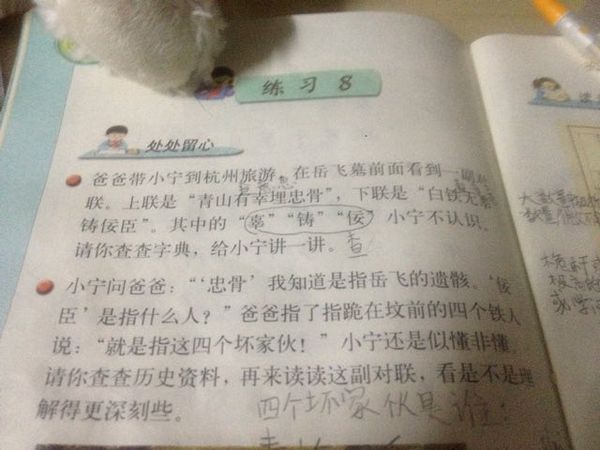 练习8
处处留心
爸爸带小宁到杭州旅游,在岳飞墓前面看到一副对
联。上联是“青山有幸埋忠骨”,下联是“白铁无辜
铸佞臣”。其中的“辜”“铸”“佞”小宁不认识。
请你查查字典,给小宁讲一讲。查
小宁问爸爸:“‘忠骨’我知道是指岳飞的遗骸。‘佞
臣’是指什么人?”爸爸指了指跪在坟前的四个铁人
说:“就是指这四个坏家伙!”小宁还是似懂非懂。
请你查查历史资料,再来读读这副对联,看是不是理
解得更深刻些。
四个坏家伙是谁: